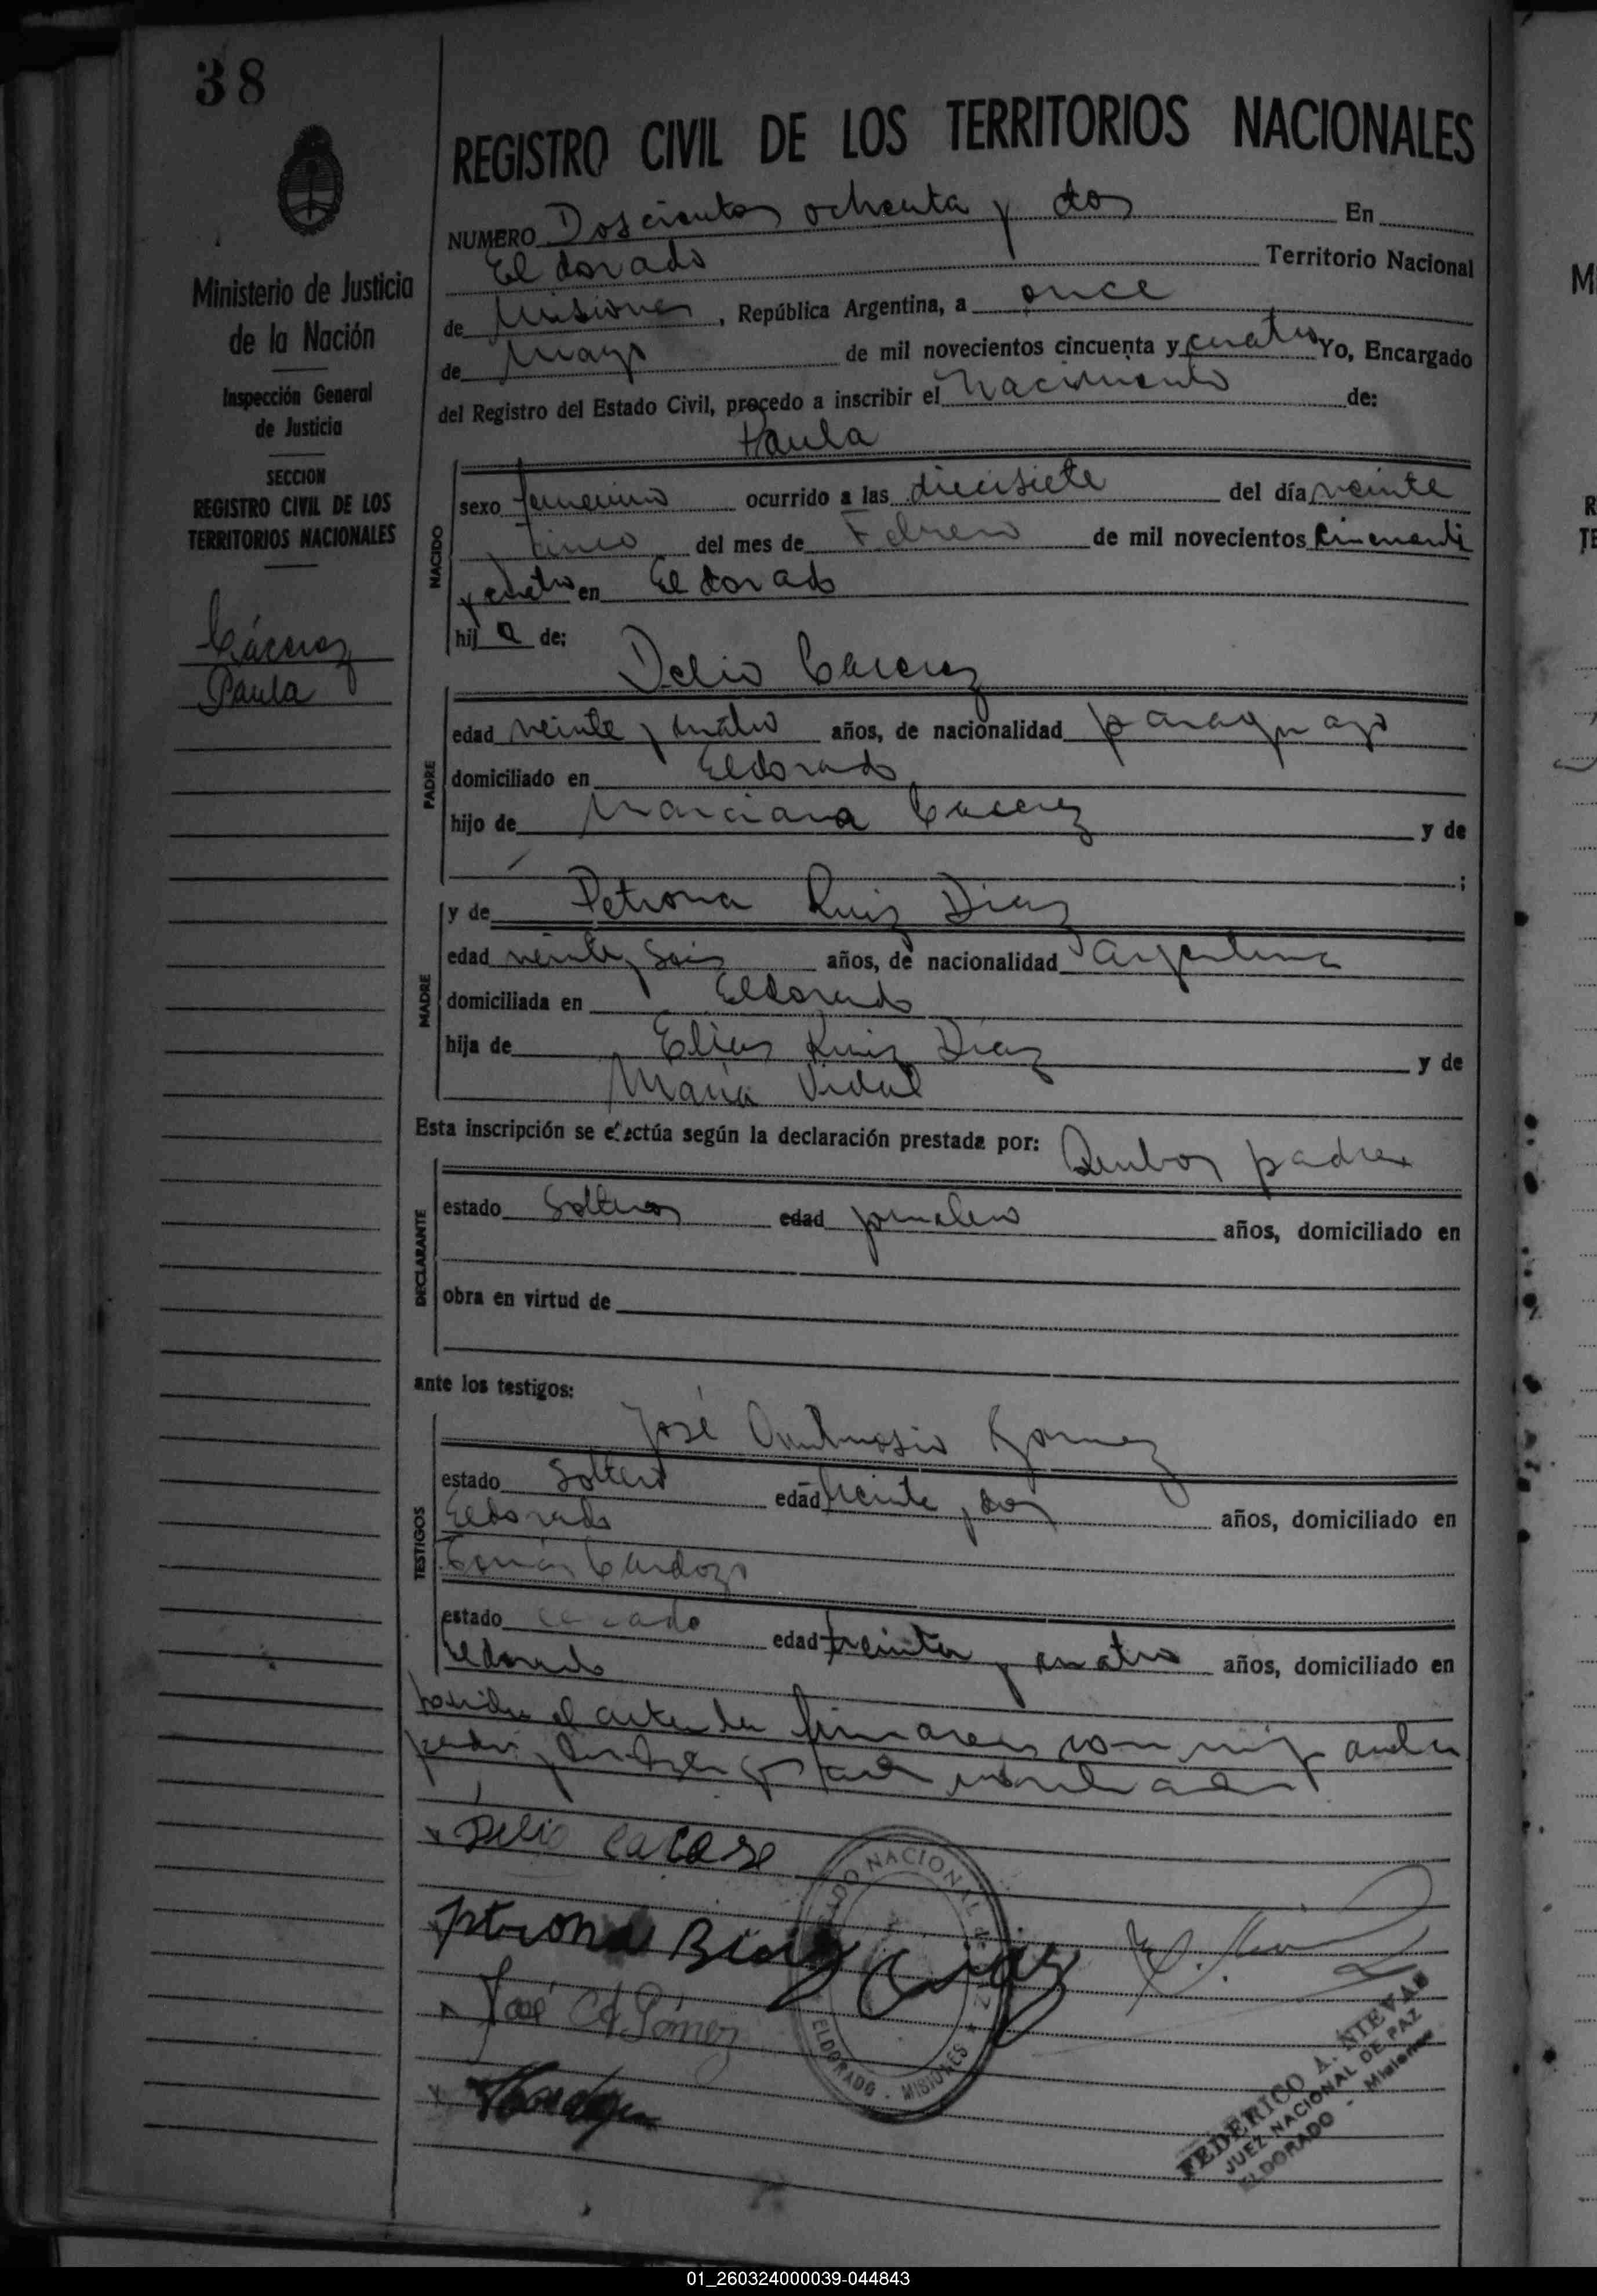 38
Ministerio de Justicia
de la Nación
Inspección General
de Justicia
SECCION
REGISTRO CIVIL DE LOS
TERRITORIOS NACIONALES
Cácerez
Paula
REGISTRO CIVIL DE LOS TERRITORIOS NACIONALES
NUMERO Doscientos ochenta y dos En
El dorado Territorio Nacional
de Misiones, República Argentina, a once
de Mayo de mil novecientos cincuenta y cuatro Yo, Encargado
del Registro del Estado Civil, procedo a inscribir el Nacimiento de:
Paula
NACIDO
sexo femenino ocurrido a las diecisiete del día veinte
y cinco del mes de Febrero de mil novecientos cincuenta
y cuatro en El dorado
hija de:
Delio Cacerez
PADRE
edad veinte y cuatro años, de nacionalidad paraguayo
domiciliado en Eldorado
hijo de Marciana Cacerez y de
;
MADRE
y de Petrona Ruiz Diaz
edad veinte y seis años, de nacionalidad Argentina
domiciliada en Eldorado
hija de Elias Ruiz Diaz y de
Maria Vidal
Esta inscripción se efectúa según la declaración prestada por: Ambos padres
DECLARANTE
estado Solteros edad jornalero años, domiciliado en
obra en virtud de
ante los testigos:
José Ambrosio Gomez
TESTIGOS
estado Soltero edad treinta y dos años, domiciliado en
Eldorado
Cardozo
estado casado edad treinta y cuatro años, domiciliado en
Eldorado
el acta la firmaron conmigo ambos
Delio Cacere
José A Gómez
JUZGADO NACIONAL DE PAZ
ELDORADO - MISIONES
FEDERICO A. NIEVAS
JUEZ NACIONAL DE PAZ
ELDORADO - Misiones
01_260324000039-044843